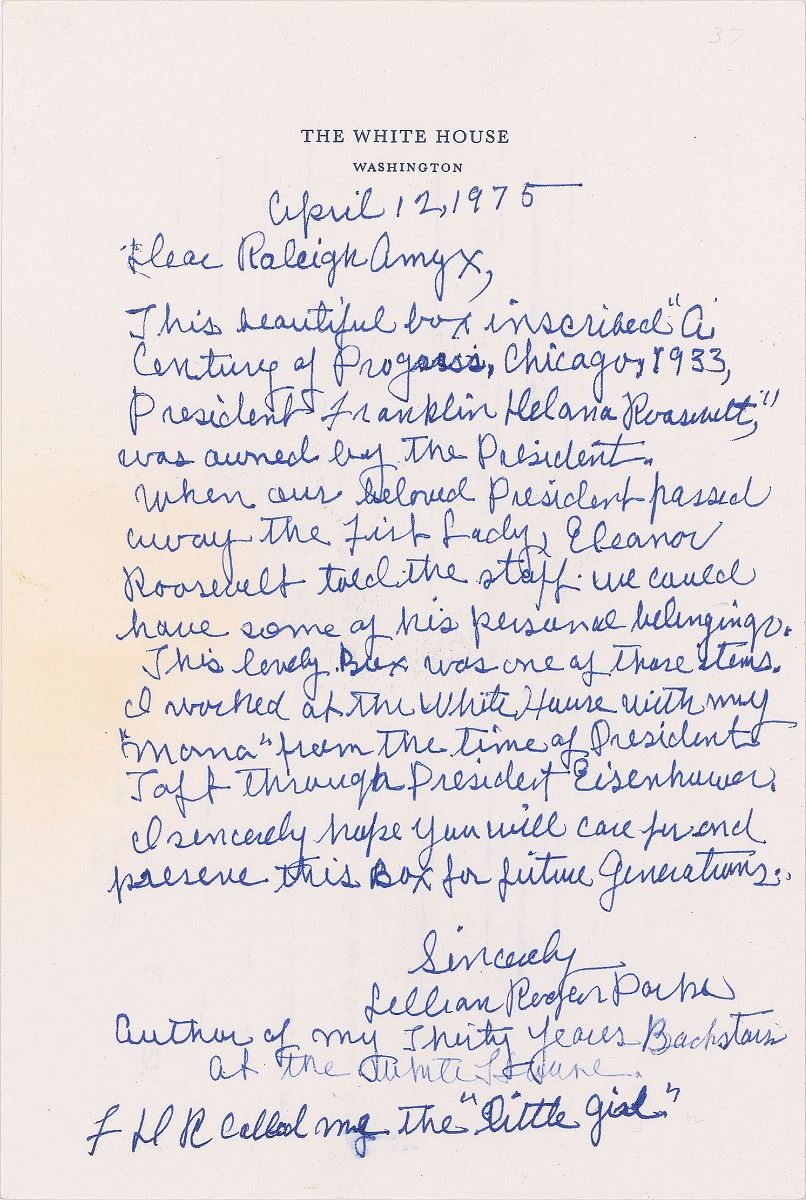 37
THE WHITE HOUSE
WASHINGTON
April 12, 1975
Dear Raleigh Amyx,
This beautiful box inscribed "A
Century of Progress, Chicago, 1933,
President Franklin Delano Roosevelt,"
was owned by the President.
When our beloved President passed
away the First Lady, Eleanor
Roosevelt told the staff we could
have some of his personal belongings.
This lovely Box was one of those items.
I worked at the White House with my
"Mama" from the time of President
Taft through President Eisenhower.
I sincerely hope you will care for and
preserve this Box for future Generations.
Sincerely
Lillian Rogers Parks
Author of my Thirty Years Backstairs
at the White House.
F D R called me the "little girl."